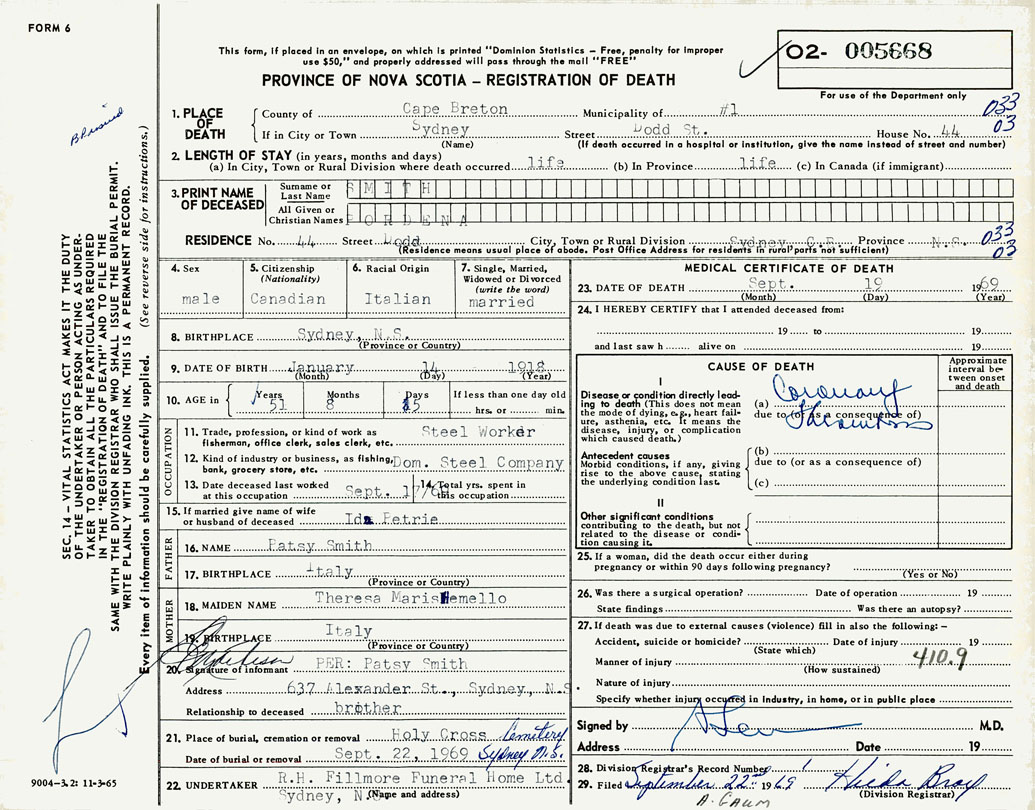 FORM 6
This form, if placed in an envelope, on which is printed "Dominion Statistics – Free, penalty for improper
use $50," and properly addressed will pass through the mail "FREE"
PROVINCE OF NOVA SCOTIA – REGISTRATION OF DEATH
02- 005668
For use of the Department only
1. PLACE OF DEATH
County of Cape Breton Municipality of #1 033
If in City or Town Sydney Street Dodd St. House No. 44 03
(Name) (If death occurred in a hospital or institution, give the name instead of street and number)
2. LENGTH OF STAY (in years, months and days)
(a) In City, Town or Rural Division where death occurred life (b) In Province life (c) In Canada (if immigrant)
3. PRINT NAME OF DECEASED
Surname or Last Name SMITH
All Given or Christian Names PORDENA
RESIDENCE No. 44 Street Dodd City, Town or Rural Division Sydney C.B. Province N.S. 033
(Residence means usual place of abode. Post Office Address for residents in rural parts not sufficient) 03
4. Sex
male
5. Citizenship
(Nationality)
Canadian
6. Racial Origin
Italian
7. Single, Married,
Widowed or Divorced
(write the word)
married
8. BIRTHPLACE Sydney, N.S.
(Province or Country)
9. DATE OF BIRTH January 14 1918
(Month) (Day) (Year)
10. AGE in
Years Months Days If less than one day old
51 8 5 hrs. or min.
OCCUPATION
11. Trade, profession, or kind of work as
fisherman, office clerk, sales clerk, etc. Steel Worker
12. Kind of industry or business, as fishing,
bank, grocery store, etc. Dom. Steel Company
13. Date deceased last worked
at this occupation Sept. 17/69
14. Total yrs. spent in
this occupation
15. If married give name of wife
or husband of deceased Ida Petrie
FATHER
16. NAME Patsy Smith
17. BIRTHPLACE Italy
(Province or Country)
MOTHER
18. MAIDEN NAME Theresa Maris Hemello
19. BIRTHPLACE Italy
(Province or Country)
20. Signature of informant PER: Patsy Smith
Address 637 Alexander St., Sydney, N.S.
Relationship to deceased brother
21. Place of burial, cremation or removal Holy Cross Cemetery
Date of burial or removal Sept. 22, 1969 Sydney N.S.
22. UNDERTAKER R.H. Fillmore Funeral Home Ltd.
Sydney, N.S. (Name and address)
MEDICAL CERTIFICATE OF DEATH
23. DATE OF DEATH Sept. 19 1969
(Month) (Day) (Year)
24. I HEREBY CERTIFY that I attended deceased from:
19 to 19
and last saw h alive on 19
CAUSE OF DEATH
Approximate
interval be-
tween onset
and death
I
Disease or condition directly lead-
ing to death (This does not mean
the mode of dying, e.g., heart fail-
ure, asthenia, etc. It means the
disease, injury, or complication
which caused death.)
(a) Coronary
due to (or as a consequence of)
Thrombosis
Antecedent causes
Morbid conditions, if any, giving
rise to the above cause, stating
the underlying condition last.
(b)
due to (or as a consequence of)
(c)
II
Other significant conditions
contributing to the death, but not
related to the disease or condi-
tion causing it.
25. If a woman, did the death occur either during
pregnancy or within 90 days following pregnancy?
(Yes or No)
26. Was there a surgical operation? Date of operation 19
State findings Was there an autopsy?
27. If death was due to external causes (violence) fill in also the following:–
Accident, suicide or homicide? Date of injury 19
(State which)
Manner of injury 410.9
(How sustained)
Nature of injury
Specify whether injury occurred in industry, in home, or in public place
Signed by M.D.
Address Date 19
28. Division Registrar's Record Number
29. Filed September 22nd 1969 Hilda Bray
(Division Registrar)
A. GAUM
SEC. 14 – VITAL STATISTICS ACT MAKES IT THE DUTY
OF THE UNDERTAKER OR PERSON ACTING AS UNDER-
TAKER TO OBTAIN ALL THE PARTICULARS REQUIRED
IN THE "REGISTRATION OF DEATH" AND TO FILE THE
SAME WITH THE DIVISION REGISTRAR WHO SHALL ISSUE THE BURIAL PERMIT.
WRITE PLAINLY WITH UNFADING INK. THIS IS A PERMANENT RECORD.
Every item of information should be carefully supplied. (See reverse side for instructions.)
9004–3.2: 11-3-65